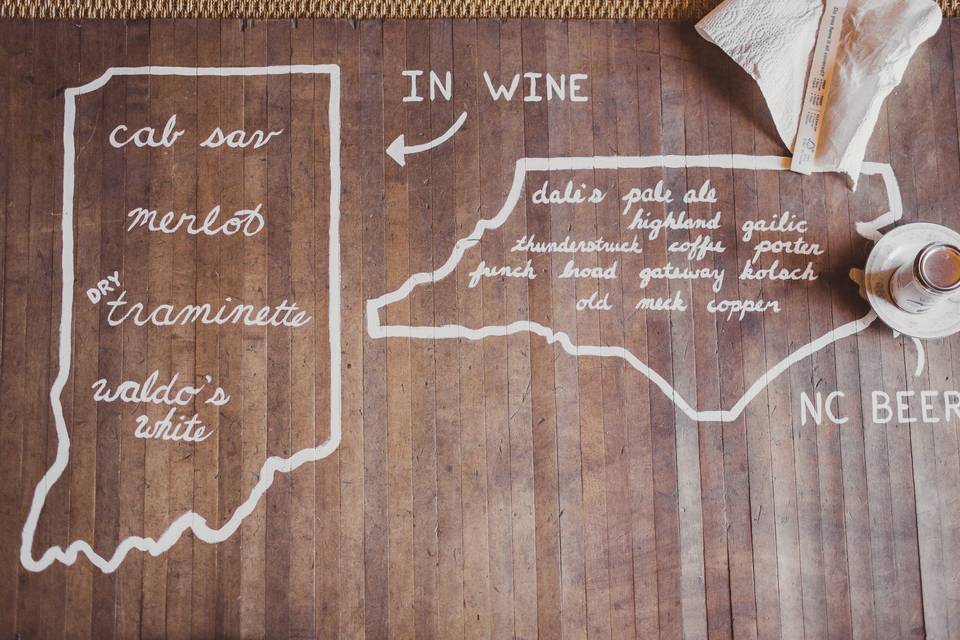 IN WINE
cab sav
merlot
DRY
traminette
waldo's
white
dale's pale ale
highland gailic
thunderstruck coffee porter
french broad gateway kolsch
old meck copper
NC BEER